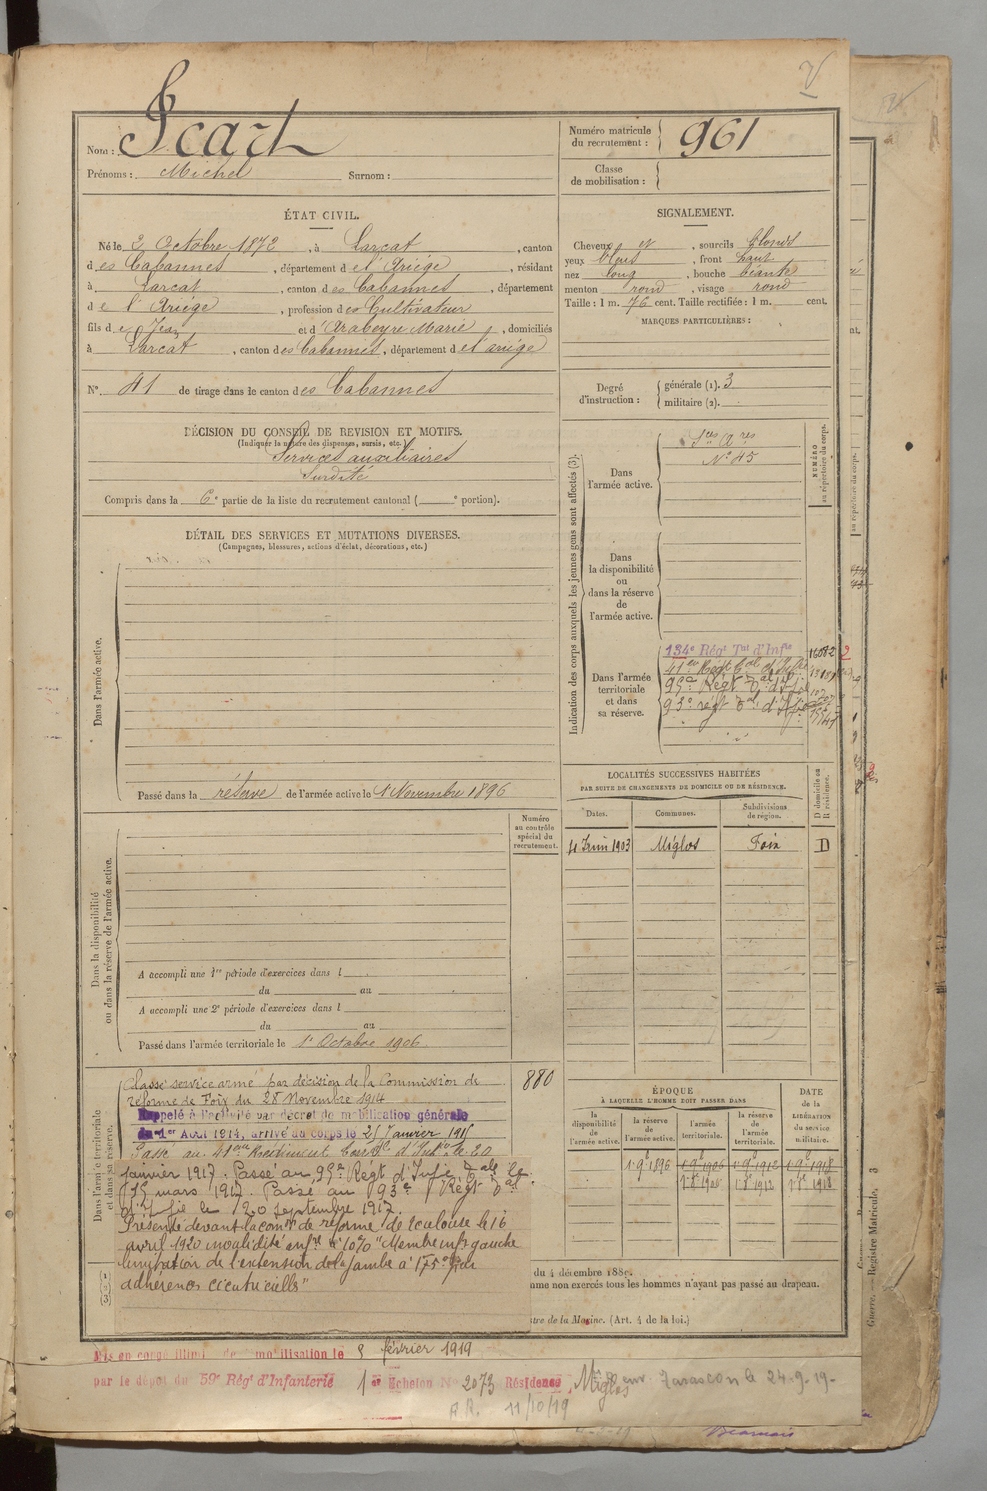 Nom : Icart
Prénoms : Michel Surnom :
Numéro matricule du recrutement : 961
Classe de mobilisation :
ÉTAT CIVIL.
Né le 2 Octobre 1872, à Larcat, canton
des Cabannes, département de l'Ariège, résidant
à Larcat, canton des Cabannes, département
de l'Ariège, profession de Cultivateur
fils de Jean et d'Arabeyre Marie, domiciliés
à Larcat, canton des Cabannes, département de l'ariège
N° 41 de tirage dans le canton des Cabannes
DÉCISION DU CONSEIL DE REVISION ET MOTIFS.
(Indiquer la nature des dispenses, sursis, etc.)
Services auxiliaires
Surdité
Compris dans la 6e partie de la liste du recrutement cantonal ( e portion).
DÉTAIL DES SERVICES ET MUTATIONS DIVERSES.
(Campagnes, blessures, actions d'éclat, décorations, etc.)
Dans l'armée active.
Passé dans la réserve de l'armée active le 1 Novembre 1896
Numéro au contrôle spécial du recrutement.
Dans la disponibilité ou dans la réserve de l'armée active.
A accompli une 1re période d'exercices dans l
du au
A accompli une 2e période d'exercices dans l
du au
Passé dans l'armée territoriale le 1er Octobre 1906
Dans l'armée territoriale et dans sa réserve.
880
Classé service armé par décision de la Commission de
réforme de Foix du 28 Novembre 1914
Rappelé à l'activité par décret de mobilisation générale
du 1er Août 1914, arrivé au corps le 25 Janvier 1915
Passé au 41eme Régiment Territal d'Infrie le 20
janvier 1917. Passé au 95e Régt d'Infie Tale le
15 mars 1917. Passé au 93e Régt Tal
d'Infie le 20 septembre 1917.
Présenté devant la comon de réforme de Toulouse le 16
avril 1920 invalidité infre à 10% "Membre inf gauche
limitation de l'extension de la jambe à 175°
adhérences cicatricielles"
SIGNALEMENT.
Cheveux et, sourcils blonds
yeux bleus, front haut
nez long, bouche béante
menton rond, visage rond
Taille : 1 m. 76 cent. Taille rectifiée : 1 m. cent.
MARQUES PARTICULIÈRES :
Degré d'instruction : générale (1). 3
militaire (2).
Indication des corps auxquels les jeunes gens sont affectés (3).
NUMÉRO au répertoire du corps.
Dans l'armée active.
Sces Ares
N° 45
Dans la disponibilité ou dans la réserve de l'armée active.
Dans l'armée territoriale et dans sa réserve.
134e Régt Tal d'Infie
41e Régt Tal d'Infie
95e Régt Tal d'Infie
93e régt Tal d'Infie
LOCALITÉS SUCCESSIVES HABITÉES
PAR SUITE DE CHANGEMENTS DE DOMICILE OU DE RÉSIDENCE.
Dates. Communes. Subdivisions de région. D domicile ou R résidence.
4 Juin 1903 Miglos Foix D
ÉPOQUE
À LAQUELLE L'HOMME DOIT PASSER DANS
DATE de la LIBÉRATION du service militaire.
la disponibilité de l'armée active. la réserve de l'armée active. l'armée territoriale. la réserve de l'armée territoriale.
1 9e 1896 1 9e 1906 1 9e 1912 1 9e 1918
1 8e 1906 1 8e 1912 1 8e 1918
du 4 décembre 188
mme non exercés tous les hommes n'ayant pas passé au drapeau.
stre de la Marine. (Art. 4 de la loi.)
Guerre. — Registre Matricule. 3
Mis en congé illimité de démobilisation le 5 février 1919
par le dépôt du 59e Régt d'Infanterie 1er Echelon N° 2073 Résidence Miglos
Tarascon le 24-9-19-
11/10/19